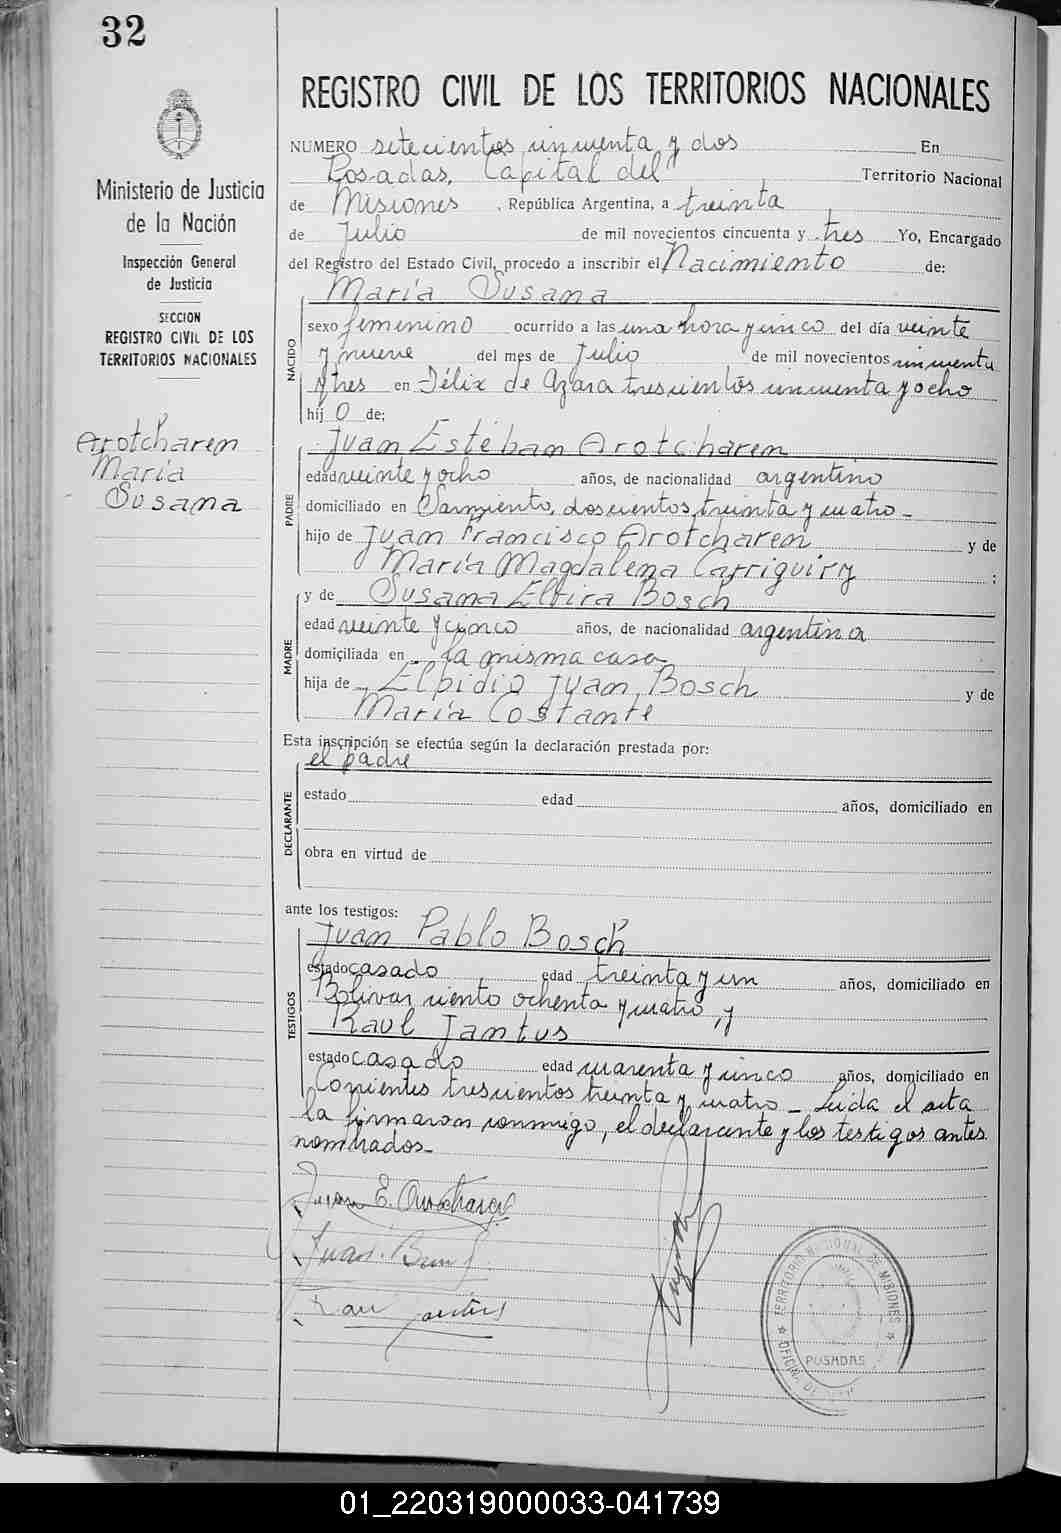 32
REGISTRO CIVIL DE LOS TERRITORIOS NACIONALES
Ministerio de Justicia
de la Nación
Inspección General
de Justicia
SECCION
REGISTRO CIVIL DE LOS
TERRITORIOS NACIONALES
Arotcharen
María
Susana
NUMERO setecientos cincuenta y dos En
Posadas, Capital del Territorio Nacional
de Misiones, República Argentina, a treinta
de Julio de mil novecientos cincuenta y tres Yo, Encargado
del Registro del Estado Civil, procedo a inscribir el Nacimiento de:
María Susana
NACIDO
sexo femenino ocurrido a las una hora y cinco del día veinte
y nueve del mes de Julio de mil novecientos cincuenta
y tres en Félix de Azara trescientos cincuenta y ocho
hij o de:
PADRE
Juan Estéban Arotcharen
edad veinte y ocho años, de nacionalidad argentino
domiciliado en Sarmiento, doscientos treinta y cuatro_
hijo de Juan Francisco Arotcharen y de
María Magdalena Carriquiry ;
MADRE
y de Susana Elvira Bosch
edad veinte y cinco años, de nacionalidad argentina
domiciliada en la misma casa
hija de Elpidio Juan Bosch y de
María Costante
Esta inscripción se efectúa según la declaración prestada por:
el padre
DECLARANTE
estado edad años, domiciliado en
obra en virtud de
ante los testigos:
TESTIGOS
Juan Pablo Bosch
estado casado edad treinta y un años, domiciliado en
Bolivar ciento ochenta y cuatro, y
Raul Jantus
estado casado edad cuarenta y cinco años, domiciliado en
Corrientes trescientos treinta y cuatro_ Leída el acta
la firmaron conmigo, el declarante y los testigos antes
nombrados_
Juan E. Arotcharen
Juan
Raul Jantus
TERRITORIO NACIONAL DE MISIONES
POSADAS
01_220319000033-041739